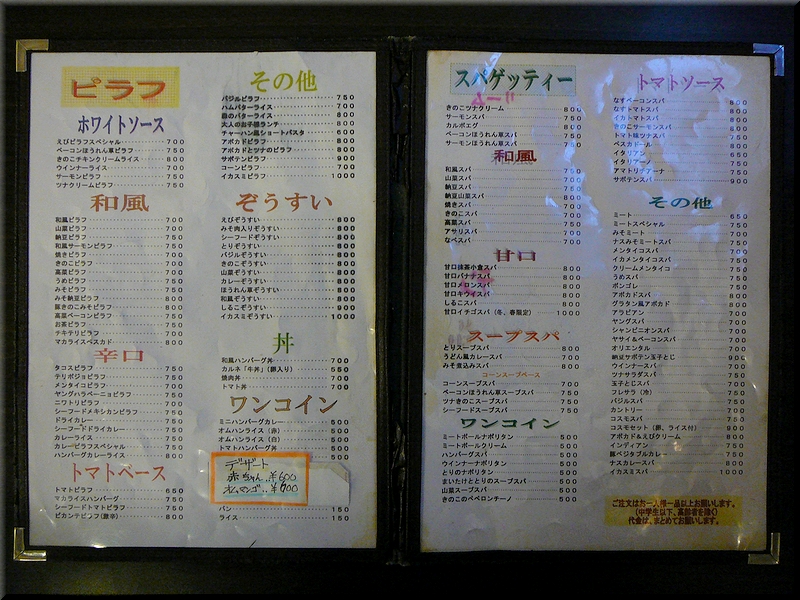 ピラフ
ホワイトソース
えびピラフスペシャル 700
ベーコンほうれん草ピラフ 750
きのこチキンクリームライス 800
ウインナーライス 700
サーモンピラフ 750
ツナクリームピラフ 750
和風
和風ピラフ 700
山菜ピラフ 700
納豆ピラフ 700
和風サーモンピラフ 750
焼きピラフ 700
きのこピラフ 700
高菜ピラフ 700
うめピラフ 750
みそピラフ 750
みそ納豆ピラフ 800
豚きのこみそピラフ 800
高菜ベーコンピラフ 750
お茶ピラフ 700
チキテリピラフ 700
マカライスペスカド 800
辛口
タコスピラフ 750
テリポジョピラフ 750
メンタイコピラフ 700
ヤングハラペーニョピラフ 750
ニワトリピラフ 700
シーフードメキシカンピラフ 750
ドライカレー 750
シーフードドライカレー 750
カレーライス 750
カレーピラフスペシャル 750
ハンバーグカレーライス 800
トマトベース
トマトピラフ 650
マカライスハンバーグ 750
シーフードトマトピラフ 750
ピカンテピラフ(激辛) 800
その他
バジルピラフ 750
ハムバターライス 700
森のバターライス 800
大人のお子様ランチ 800
チャーハン風ショートパスタ 600
アボカドピラフ 800
アボカドとツナのピラフ 800
サボテンピラフ 900
コーンピラフ 700
イカスミピラフ 1000
ぞうすい
えびぞうすい 800
みそ肉入りぞうすい 800
シーフードぞうすい 800
とりぞうすい 800
バジルぞうすい 800
きのこぞうすい 800
山菜ぞうすい 800
カレーぞうすい 800
ほうれん草ぞうすい 800
和風ぞうすい 800
しるこぞうすい 900
イカスミぞうすい 1000
丼
和風ハンバーグ丼 700
カルネ「牛丼」(餅入り) 550
焼肉丼 700
トマト丼 700
ワンコイン
ミニハンバーグカレー 500
オムハンライス(赤) 500
オムハンライス(白) 500
トマトハンバーグ丼 500
500
デザート
赤ちゃん‥¥600
オムマンゴ‥¥700
パン 150
ライス 150
スパゲッティー
きのこツナクリーム 800
サーモンスパ 750
カルボエグ 800
ベーコンほうれん草スパ 750
サーモンほうれん草スパ 800
和風
和風スパ 750
山菜スパ 700
納豆スパ 750
納豆山菜スパ 800
焼きスパ 700
きのこスパ 700
高菜スパ 750
アサリスパ 700
なべスパ 700
甘口
甘口抹茶小倉スパ 800
甘口バナナスパ 800
甘口メロンスパ 800
甘口キウイスパ 800
しるこスパ 800
甘口イチゴスパ(冬、春限定) 1000
スープスパ
とりスープスパ 800
うどん風カレースパ 700
みそ煮込みスパ 800
コーンスープベース
コーンスープスパ 700
ベーコンほうれん草スープスパ 700
ツナきのこスープスパ 700
シーフードスープスパ 750
ワンコイン
ミートボールナポリタン 500
ミートボールクリーム 500
ハンバーグスパ 500
ウインナーナポリタン 500
とりのナポリタン 500
まいたけととりのスープスパ 500
山菜スープスパ 500
きのこのペペロンチーノ 500
トマトソース
なすベーコンスパ 800
なすトマトスパ 800
イカトマトスパ 800
きのこサーモンスパ 800
トマト味ツナスパ 750
ペスカドール 800
イタリアン 650
イタリアーノ 750
アマトリチアーナ 750
サボテンスパ 900
その他
ミート 650
ミートスペシャル 750
みそミート 700
ナスみそミートスパ 750
メンタイコスパ 700
イカメンタイコスパ 750
クリームメンタイコ 750
うめスパ 750
ボンゴレ 750
アボカドスパ 800
グラタン風アボカド 800
アラビアン 750
ヤングスパ 750
シャンピニオンスパ 750
ヤサイ&ベーコンスパ 750
オリエンタル 700
納豆サボテン玉子とじ 900
ウインナースパ 700
ツナサラダスパ 750
玉子とじスパ 700
フレサラ(冷) 750
バジルスパ 750
カントリー 700
コスモスパ 750
コスモセット(餅、ライス付) 900
アボカド&えびクリーム 800
インディアン 750
豚ベジタブルカレー 750
ナスカレースパ 800
イカスミスパ 1000
ご注文はお一人様一品以上お願いします。
(中学生以下、高齢者を除く)
代金は、まとめてお願いします。